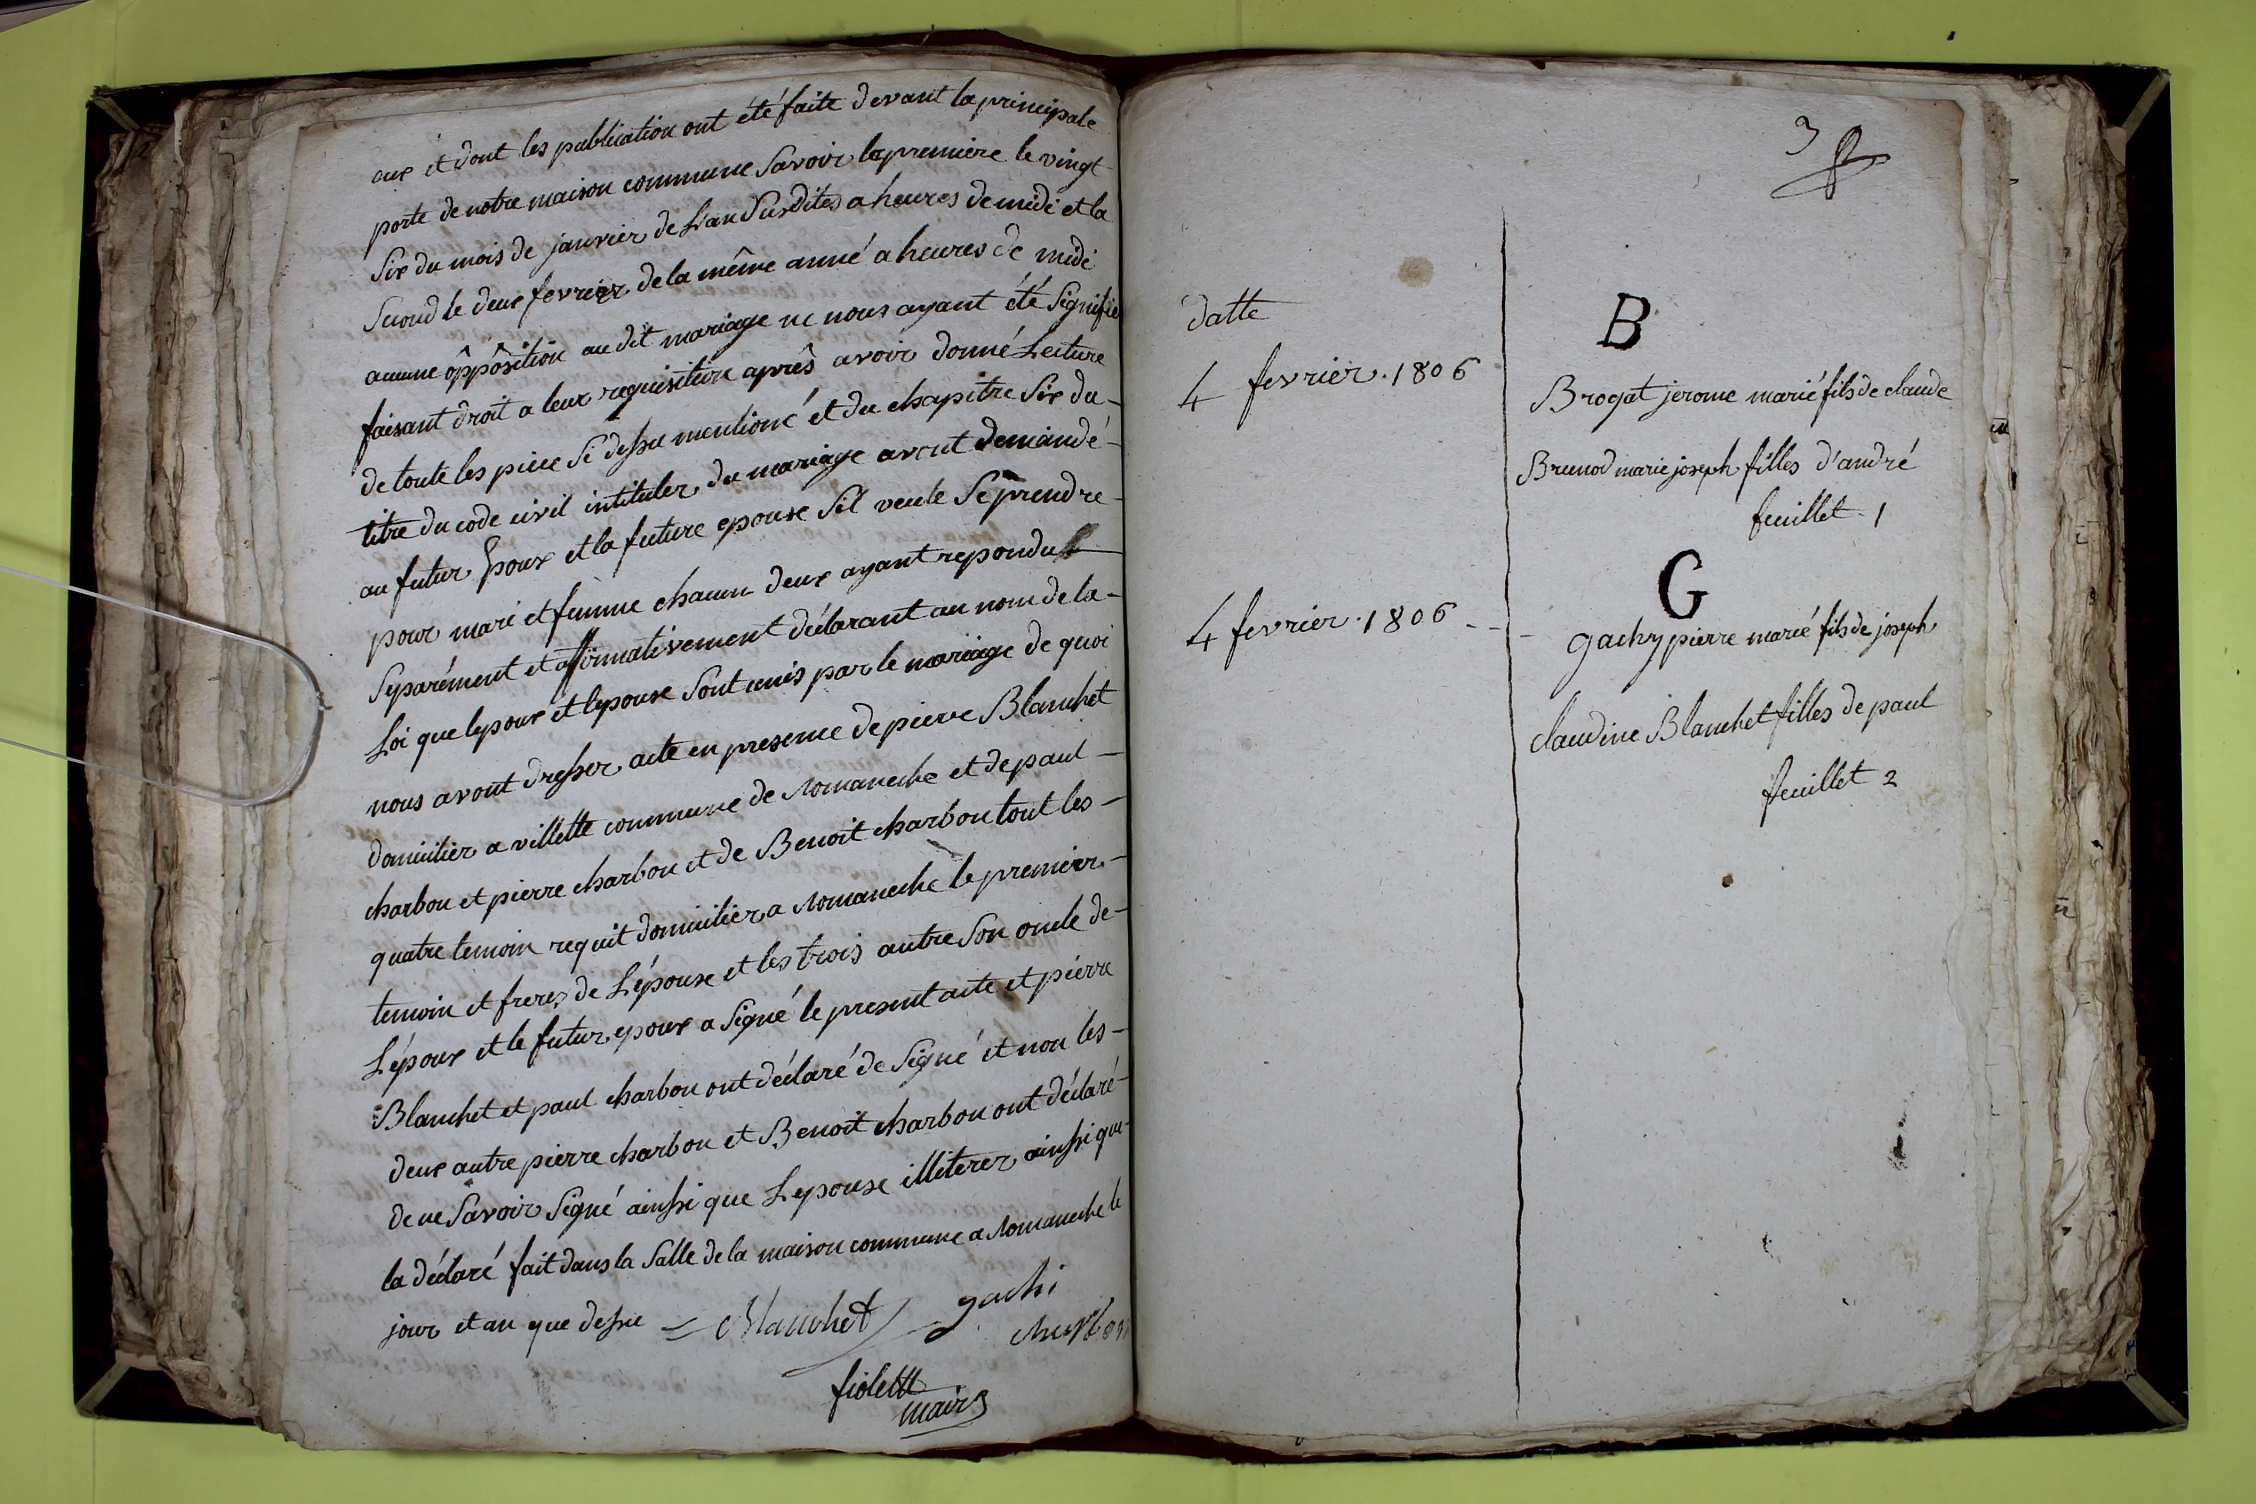 eux et dont les publication ont été faite devant la principale
porte de notre maison commune Savoir la premiere le vingt
Six du mois de janvier de L'an Susdites a heures de midi et la
Second le deux fevrier de la même anné a heures de midi
aucune ôppôsition au dit mariage ne nous ayant été Signifié
faisant droit a leur requisition après avoir donné Lecture
de toute les piece Si dessu mentioné et du chapitre Six du -
titre du code civil intituler du mariage avont demandé -
au futur Epoux et la future epouse Sil veule Se prendre -
pour mari et femme chacun deux ayant repondu
Séparément et affirmativement déclarant au nom de la -
Loi que lepoux et lepouse Sont unis par le mariage de quoi
nous avont dresser acte en presence de pierre Blanchet
domicilier a villette commune de Romaneche et de paul -
charbon et pierre charbon et de Benoit charbon tout les -
quatre temoin requit domicilier a Romaneche le premier -
temoin et freres de L'épouse et les trois autre Son oncle de -
L'époux et le futur epoux a Signé le present acte et pierre
Blanchet et paul charbon ont déclaré de Signé et non les -
deux autre pierre charbon et Benoit charbon ont déclaré -
de ne Savoir Signé ainssi que Lepouse illiterer ainssi que -
la déclaré fait dans la Salle de la maison commune a Romaneche le
jour et an que dessu = Blanchet gachi
charbon
fiolett
maire
3
datte
B
4 fevrier . 1806
Brogat jerome marié fils de claude
Brunod marie joseph filles d'andré
feuillet . 1
G
4 fevrier . 1806 - - -
gachy pierre marié fils de joseph
claudine Blanchet filles de paul
feuillet 2